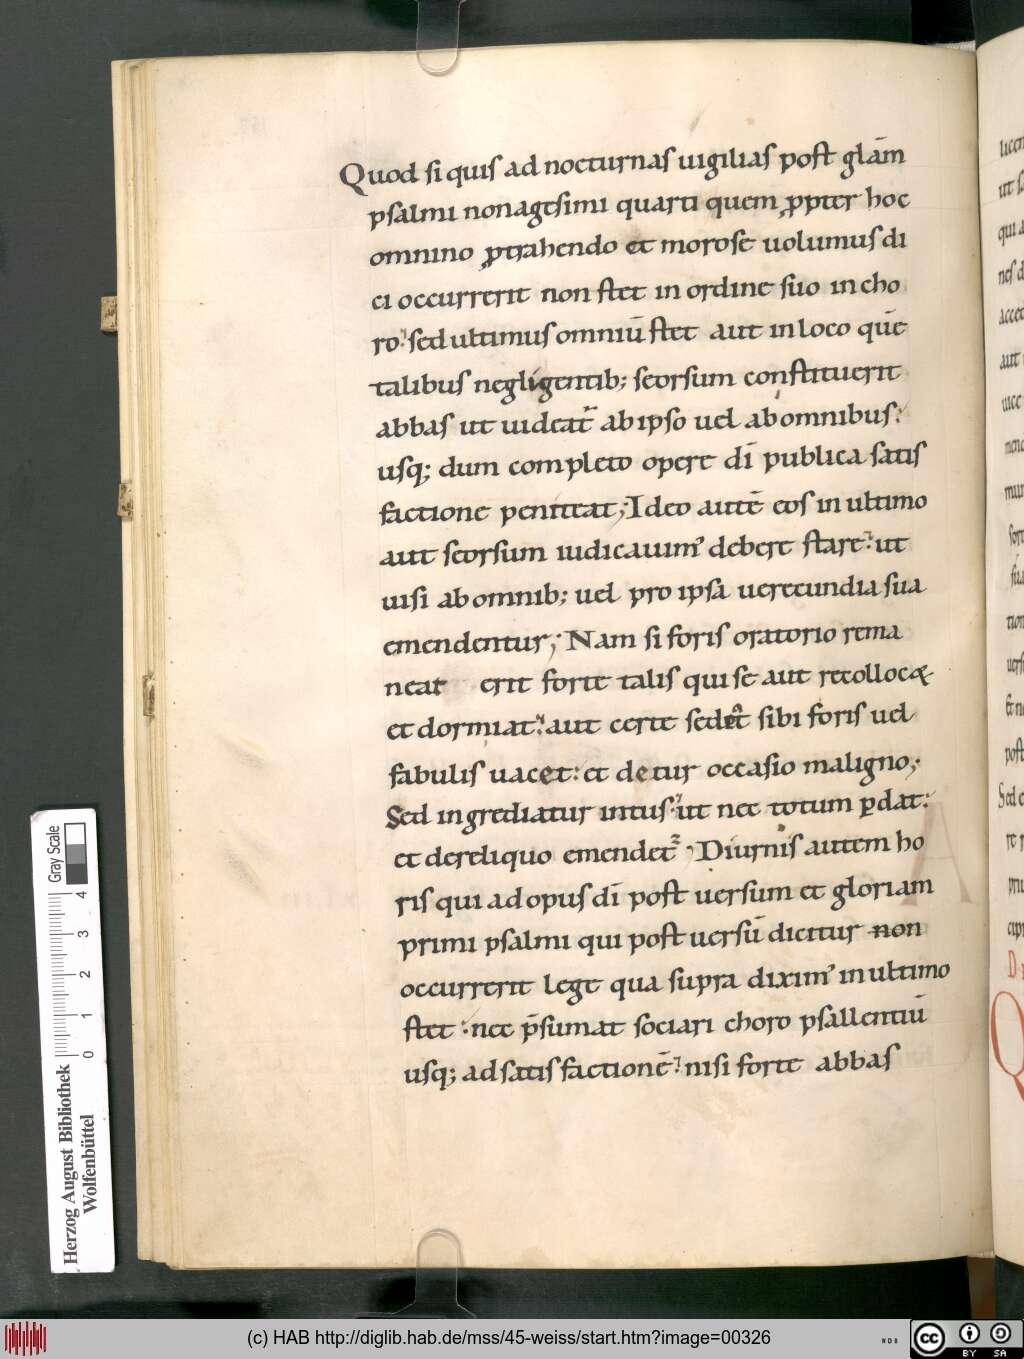 Quod si quis ad nocturnas uigilias post glām
psalmi nonagesimi quarti quem ꝓpter hoc
omnino ꝓtrahendo et morose uolumus di
ci occurrerit non stet in ordine suo in cho
ro: sed ultimus omniū stet aut in loco quē
talibus negligentib; seorsum constituerit
abbas ut uideat᷑ ab ipso uel ab omnibus:
usq; dum completo opere dī publica satis
factione peniteat; Ideo autē eos in ultimo
aut seorsum iudicauim' debere stare: ut
uisi ab omnib; uel pro ipsa uerecundia sua
emendentur; Nam si foris oratorio rema
neat erit forte talis qui se aut recollocæ
et dormiat: aut certe sedet sibi foris uel
fabulis uacet: et detur occasio maligno;
Sed ingrediatur intus: ut nec totum ꝑdat:
et dereliquo emendet᷑; Diurnis autem ho
ris qui ad opus dī post uersum et gloriam
primi psalmi qui post uersū dicitur non
occurrerit lege qua supra dixim' in ultimo
stet: nec p̄sumat sociari choro psallentiū
usq; ad satisfactionē: nisi forte abbas
licen
ut s
qui a
nes d
acced
aut
uicc
mun
tion
uers
post
Sed c
re
Q
Herzog August Bibliothek
Wolfenbüttel
Gray Scale
0 1 2 3 4
(c) HAB http://diglib.hab.de/mss/45-weiss/start.htm?image=00326
cc BY SA